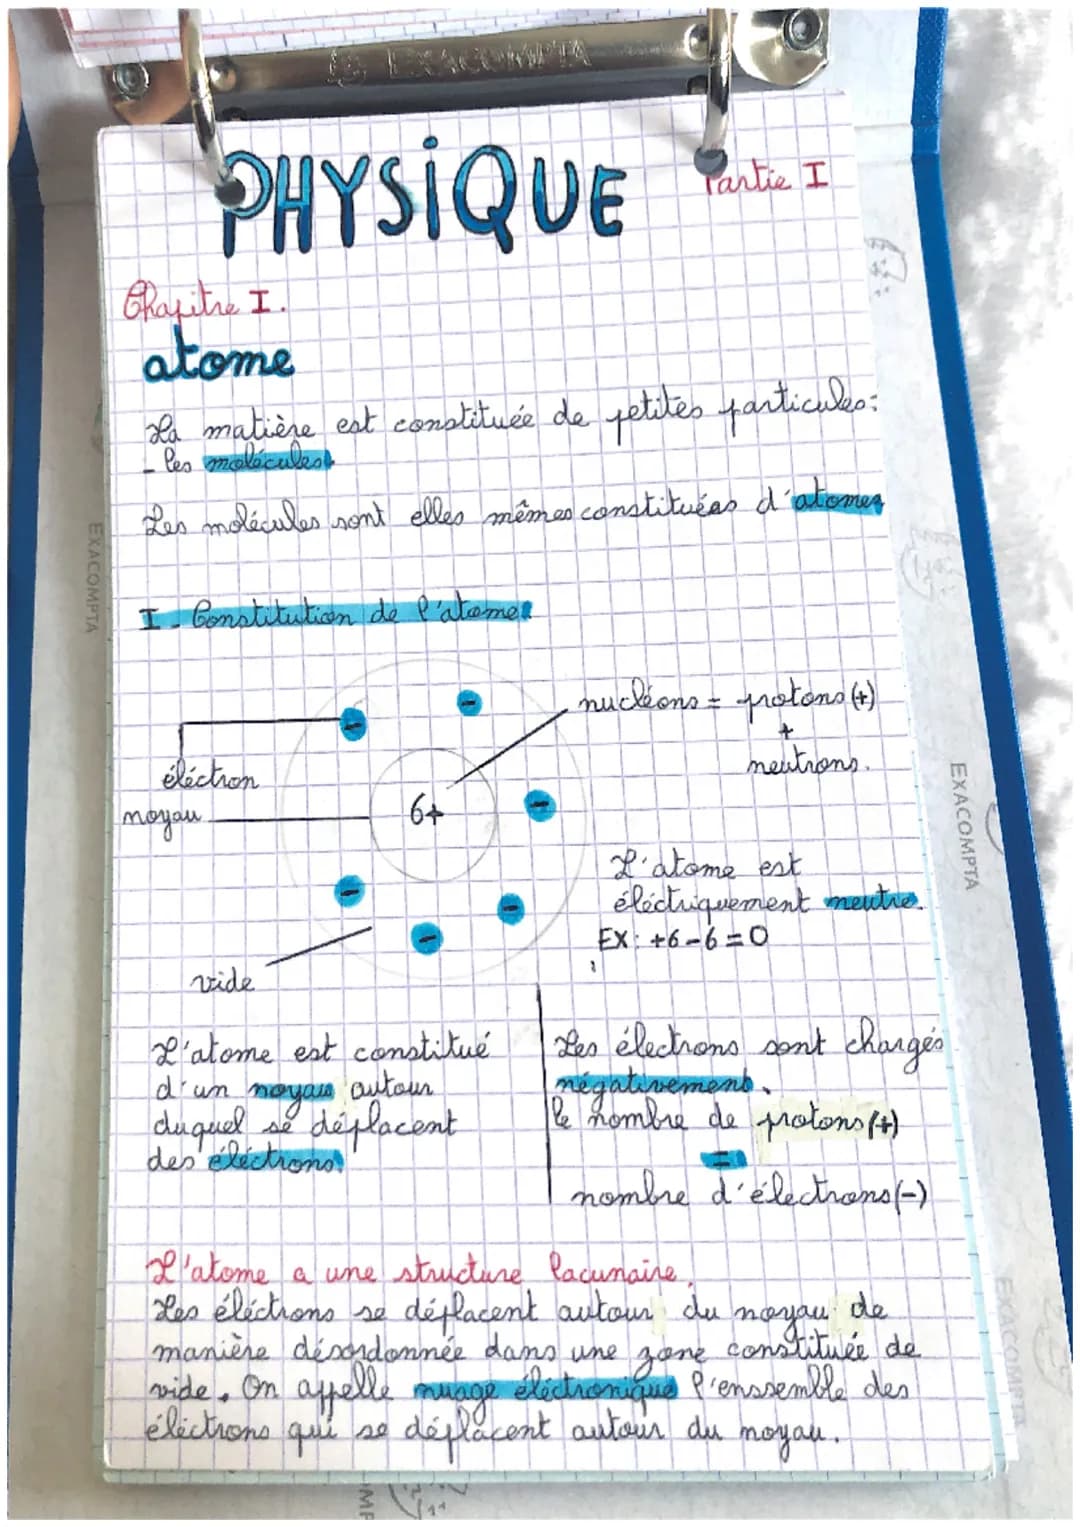 EXACOMPTA
PHYSIQUE
Partie I
Chapitre I.
atome
La matière est constituée de petites particules:
- les molécules
Les molécules sont elles mêmes constituées d'atomes
I - Constitution de l'atome
nucléons = protons (+)
+
neutrons.
éléctron
noyau
6+
-
-
-
-
-
-
L'atome est
éléctriquement neutre.
EX: +6-6=0
vide
L'atome est constitué
d'un noyau autour
duquel se déplacent
des éléctrons.
Les électrons sont chargés
négativement.
le nombre de protons (+)
=
nombre d'électrons (-)
L'atome a une structure lacunaire.
Les éléctrons se déplacent autour du noyau de
manière désordonnée dans une zone constituée de
vide. On appelle nuage éléctronique l'enssemble des
éléctrons qui se déplacent autour du noyau.
EXACOMPTA
EXACOMPTA
EXACOMPTA